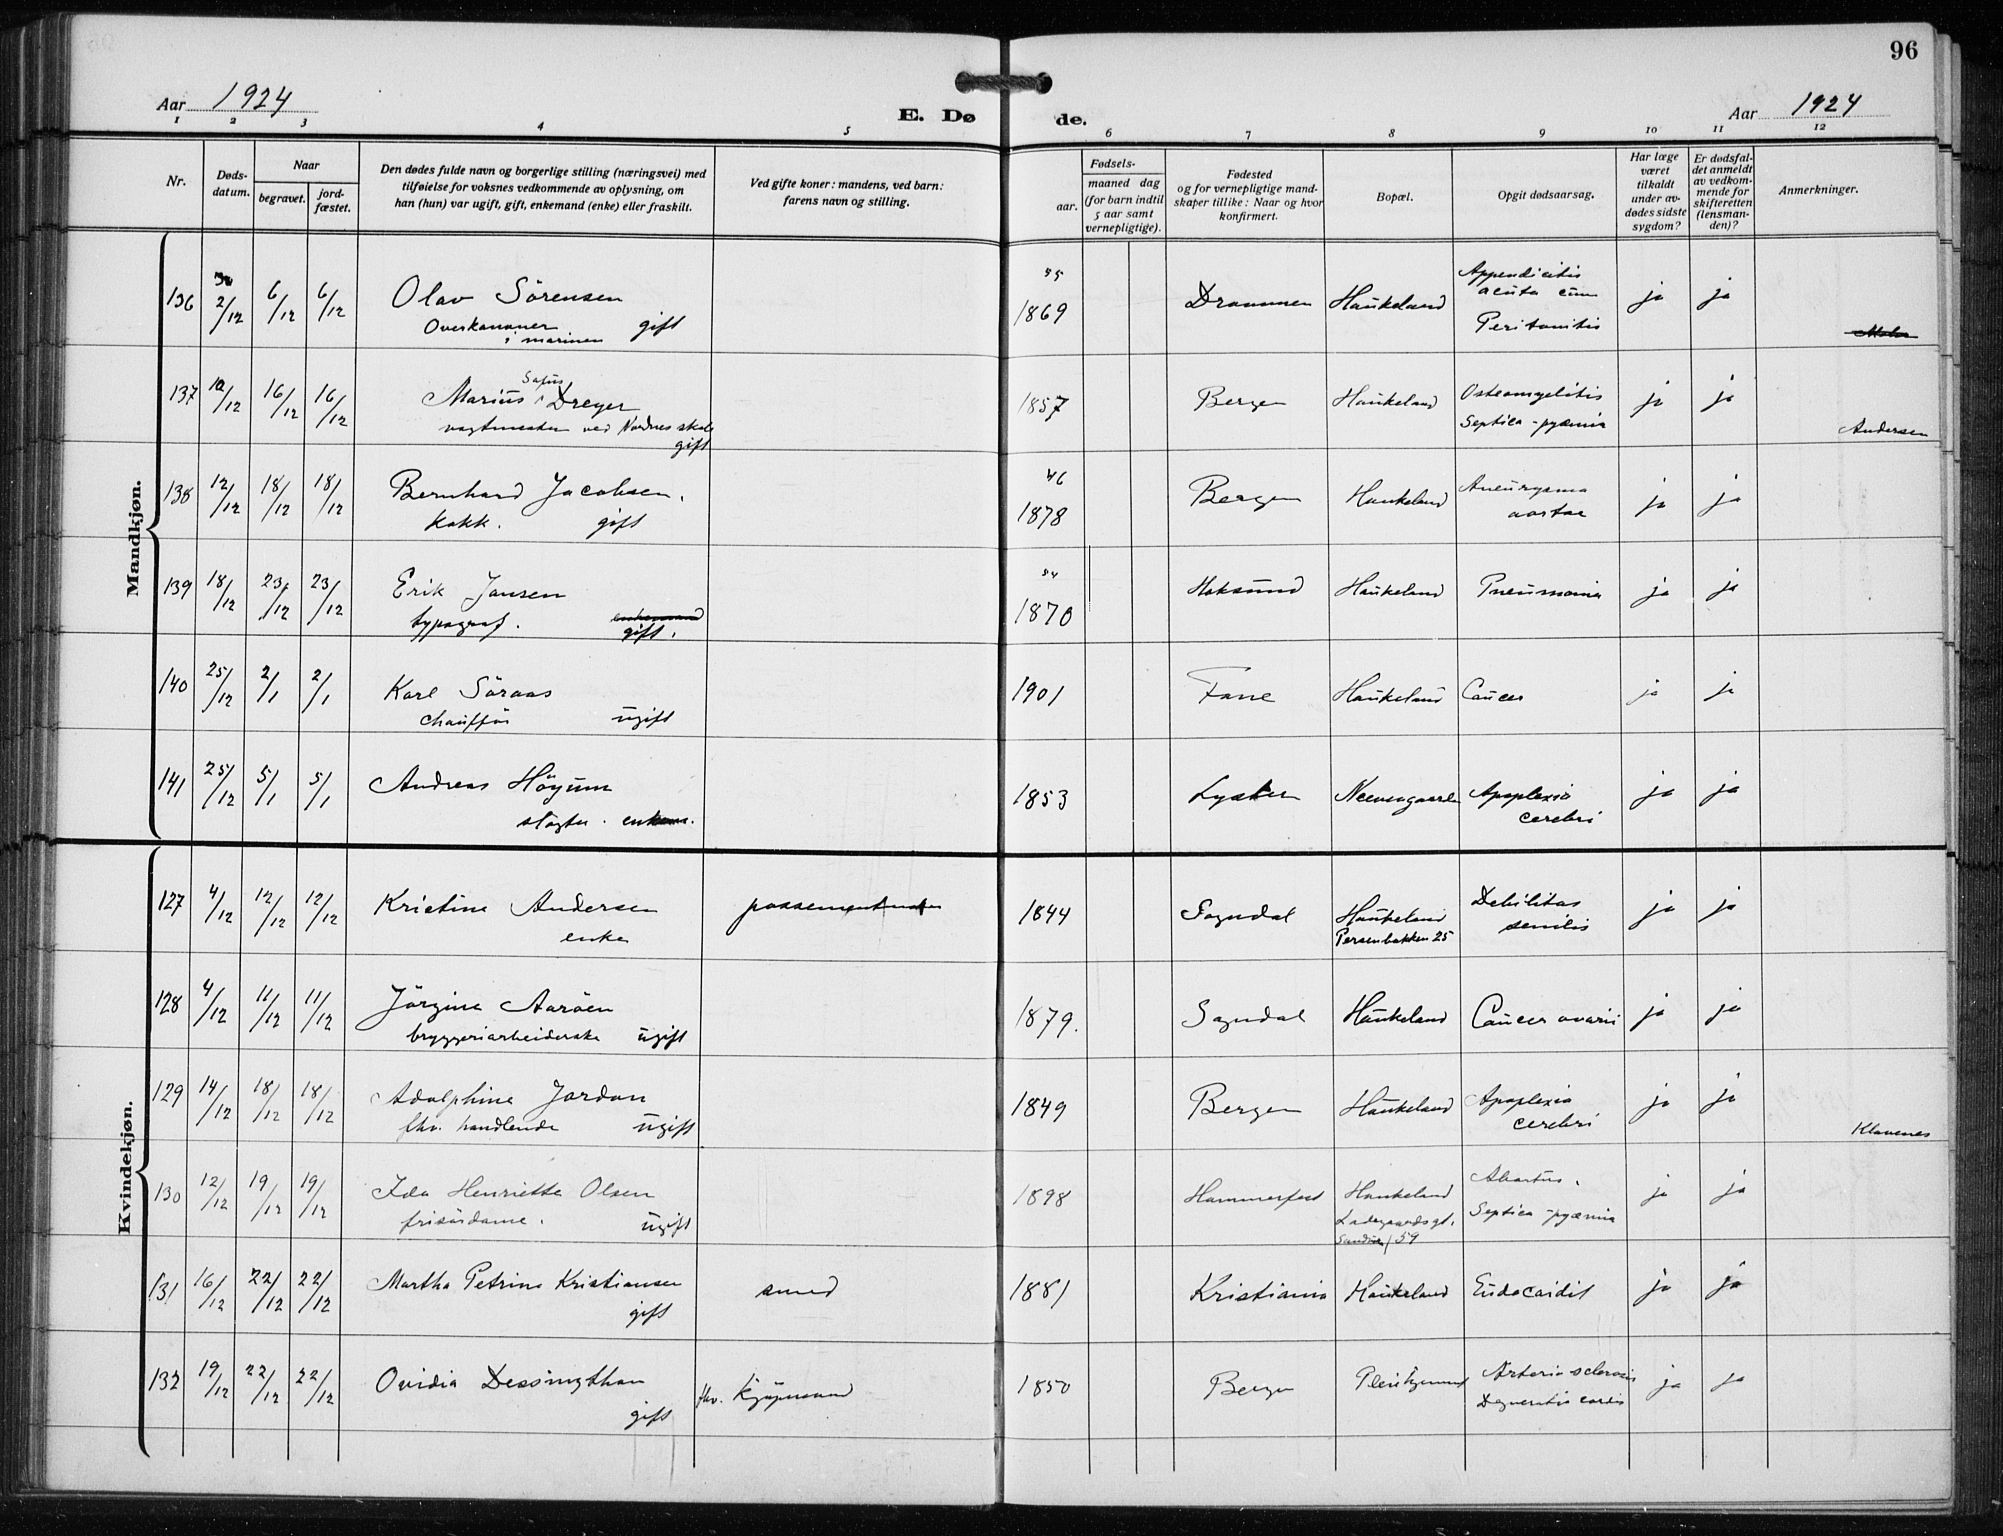 96
Aar 1924
E. Dø
de.
Aar 1924
1 2 3 4 5 6 7 8 9 10 11 12
Nr.
Døds-
datum.
Naar
begravet.
jord-
fæstet.
Den dødes fulde navn og borgerlige stilling (næringsvei) med
tilføielse for voksnes vedkommende av oplysning, om
han (hun) var ugift, gift, enkemand (enke) eller fraskilt.
Ved gifte koner: mandens, ved barn:
farens navn og stilling.
Fødsels-
aar.
maaned dag
(for barn indtil
5 aar samt
vernepligtige).
Fødested
og for vernepligtige mand-
skaper tillike: Naar og hvor
konfirmert.
Bopæl.
Opgit dødsaarsag.
Har læge
været
tilkaldt
under av-
dødes sidste
sygdom?
Er dødsfal-
det anmeldt
av vedkom-
mende for
skifteretten
(lensman-
den)?
Anmerkninger.
Mandkjøn.
136 2/12 6/12 6/12 Olav Sörensen 55 1869 Drammen Haukeland Appendicitis ja ja
acuta cum
Overkanoner gift Peritonitis
i marinen
137 10/12 16/12 16/12 Marius Sofus Dreyer 1857 Bergen Haukeland Osteomyelitis ja ja
vagtmester ved Nordnes skole Septica-pyæmia Andersen
gift
138 12/12 18/12 18/12 Bernhard Jacobsen. 46 1878 Bergen Haukeland Aneurysma ja ja
kokk. gift aortae
139 18/12 23/12 23/12 Erik Jansen 54 1870 Hoksund Haukeland Pneumonia ja ja
typograf. enkemand
gift.
140 25/12 2/1 2/1 Karl Söraas 1901 Fane Haukeland Cancer ja ja
chauffør ugift
141 25/12 5/1 5/1 Andreas Höyum 1853 Lyster Neevengaarden Apoplexia ja ja
slagter. enkem. cerebri
Kvindekjøn.
127 4/12 12/12 12/12 Kristine Andersen possementmaker 1844 Sogndal Haukeland Debilitas ja ja
enke Persenbakken 25 senilis
128 4/12 11/12 11/12 Jörgine Aaröen 1879. Sogndal Haukeland Cancer ovarii ja ja
bryggeriarbeiderske ugift
129 14/12 18/12 18/12 Adolphine Jordan 1849 Bergen Haukeland Apoplexia ja ja
fhv. handlende ugift cerebri Klavenes
130 12/12 19/12 19/12 Ida Henriette Olsen 1898 Hammerfest Haukeland Abortus. ja ja
frisördame. ugift Ladegaardsgt. Septica-pyæmia
59
131 16/12 22/12 22/12 Martha Petrine Kristiansen smed 1881 Kristiania Haukeland Endocardit ja ja
gift
132 19/12 22/12 22/12 Ovidia Dessingthon fhv. kjöpmand 1850 Bergen Pleiehjemmet Arterio sclerosis ja ja
gift Degeneratio cordis